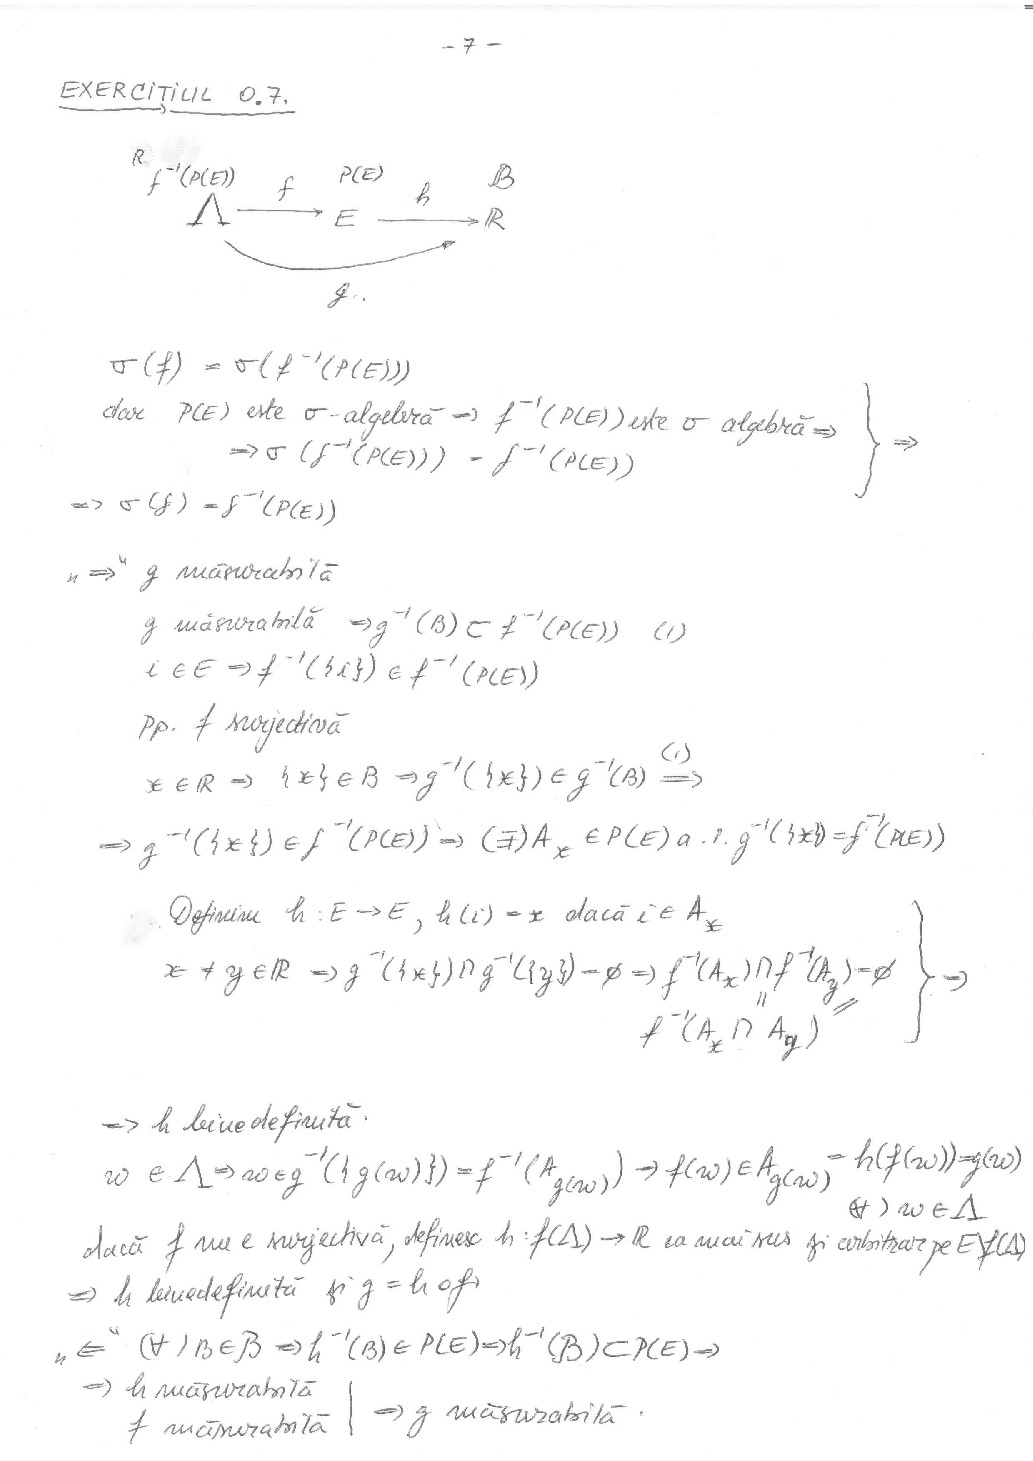 - 7 -
EXERCIȚIUL 0.7.
R f⁻¹(P(E)) f P(E) h 𝔹
Λ → E → ℝ
g
σ(f) = σ(f⁻¹(P(E)))
dar P(E) este σ-algebră ⇒ f⁻¹(P(E)) este σ algebră ⇒
⇒ σ(f⁻¹(P(E))) = f⁻¹(P(E)) } ⇒
⇒ σ(f) = f⁻¹(P(E))
„⇒" g măsurabilă
g măsurabilă ⇒ g⁻¹(B) ⊂ f⁻¹(P(E)) (1)
i ∈ E ⇒ f⁻¹({i}) ∈ f⁻¹(P(E))
Pp. f surjectivă
x ∈ ℝ ⇒ {x} ∈ B ⇒ g⁻¹({x}) ∈ g⁻¹(B) (1) ⇒
⇒ g⁻¹({x}) ∈ f⁻¹(P(E)) ⇒ (∃) Aₓ ∈ P(E) a.î. g⁻¹({x}) = f⁻¹(P(E))
Definim h : E → E, h(i) = x dacă i ∈ Aₓ
x ≠ y ∈ ℝ ⇒ g⁻¹({x}) ∩ g⁻¹({y}) = ∅ ⇒ f⁻¹(Aₓ) ∩ f⁻¹(A_y) = ∅ } ⇒
||
f⁻¹(Aₓ ∩ A_y)
⇒ h bine definită.
w ∈ Λ ⇒ w ∈ g⁻¹({g(w)}) = f⁻¹(A_g(w)) ⇒ f(w) ∈ A_g(w) = h(f(w)) = g(w)
(∀) w ∈ Λ
dacă f nu e surjectivă, definesc h : f(Λ) → ℝ ca mai sus și arbitrar pe E\f(Λ)
⇒ h bine definită și g = h o f
„⇐" (∀) B ∈ B ⇒ h⁻¹(B) ∈ P(E) ⇒ h⁻¹(B) ⊂ P(E) ⇒
⇒ h măsurabilă
f măsurabilă | ⇒ g măsurabilă.